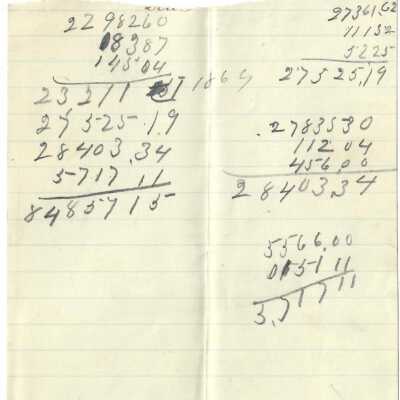 2298260
18387
14504
23211 51 1864
27525.19
28403.34
5717 11
8485715
27361.62
11132
5225
27525.19
2783530
112 04
456.00
28403.34
5566.00
0151 11
5,717 11